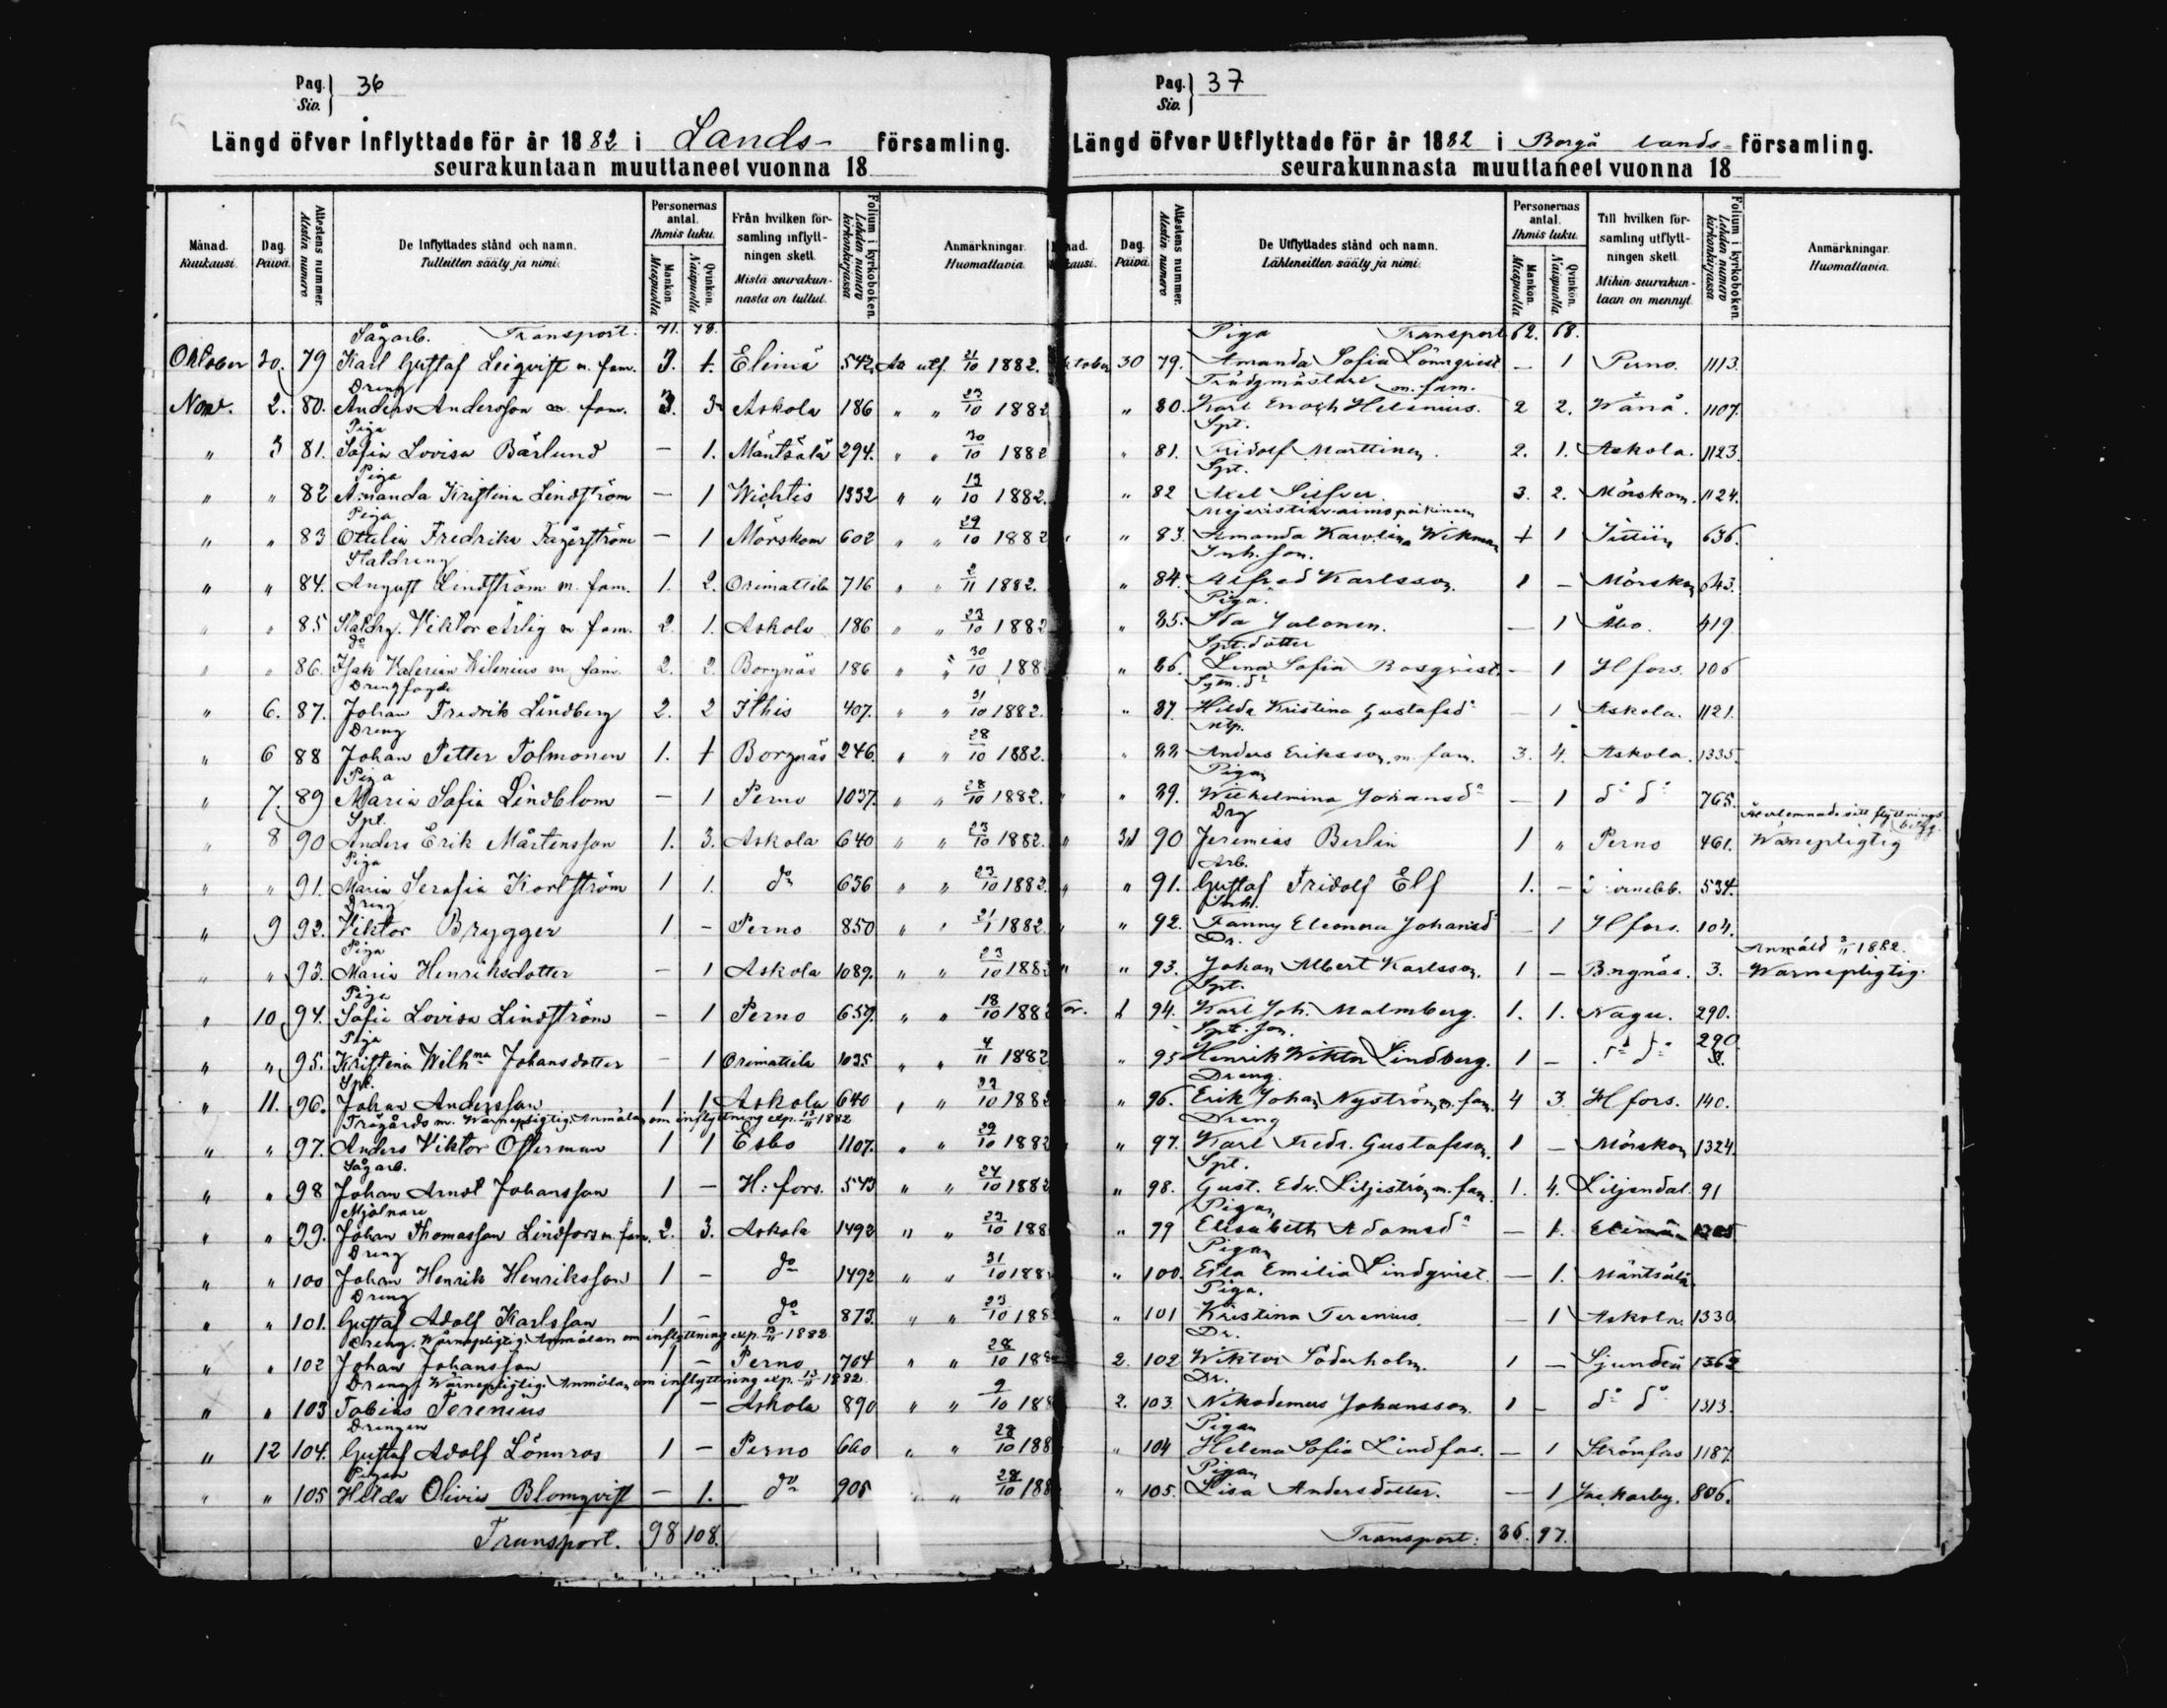 Pag. 36
Siv.
Längd öfver Inflyttade för år 1882 i Lands- församling.
seurakuntaan muuttaneet vuonna 18
Månad. Dag. Attestens nummer. De Inflyttades stånd och namn. Personernas antal. Mankön. Qvinkön. Från hvilken församling inflyttningen skett. Folium i kyrkoboken. Anmärkningar.
Kuukausi. Päivä. Atestin numero Tulleitten sääty ja nimi. Ihmis luku. Miespuolia Naispuolia Mistä seurakunnasta on tullut. Lehden numero kirkonkirjassa Huomattavia.
Sågarb. Transport: 71. 78.
Oktober 30. 79 Karl Gustaf Leiqvist m. fam. 3. 1. Elimä 542 Att utf. 21/10 1882.
Dreng
Nov. 2. 80. Anders Andersson m. fam. 3. 3 Askola 186 " " 23/10 1882
Piga
" 3 81. Sofia Lovisa Bärlund — 1. Mäntsälä 294. " " 30/10 1882
Piga
" " 82 Amanda Kristina Lindström — 1 Wichtis 1332 " " 13/10 1882.
Piga
" " 83 Ottilia Fredrika Fagerström — 1 Mörskom 602 " " 29/10 1882
Statdreng
" " 84. August Lindström m. fam. 1. 2. Orimattila 716 " " 2/11 1882.
" " 85 Statdrg. Viktor Ärlig m. fam. 2. 1. Askola 186 " " 23/10 1882
do
" " 86. Isak Valerian Wilenius m. fam. 2. 2. Borgnäs 186 " " 30/10 188
Drengfogde
" 6. 87. Johan Fredrik Lindberg 2. 2 Ithis 407. " " 31/10 1882.
Dreng
" 6 88 Johan Petter Tolmonen 1. 1 Borgnäs 246. " " 28/10 1882.
Piga
" 7. 89 Maria Sofia Lindblom — 1 Perno 1037. " " 28/10 1882.
Spt.
" 8 90 Anders Erik Mårtensson 1. 3. Askola 640 " " 23/10 1882.
Piga
" " 91. Maria Serafia Karlström 1 1. do 636 " " 23/10 1882.
Dreng
" 9 92. Viktor Brygger 1 - Perno 850 " " 21/1 1882
Piga
" " 93. Maria Henriksdotter — 1 Askola 1089. " " 23/10 1882
Piga
" 10 94. Sofia Lovisa Lindström — 1 Perno 657. " " 18/10 1882
Piga
" " 95. Kristina Wilhna Johansdotter — 1 Orimattila 1035 " " 4/11 1882
Spt.
" 11. 96. Johan Andersson 1 1 Askola 640 " " 23/10 1882
Trägårds m. Wärnepligtig. Anmälan om inflyttning exp. 13/11 1882
" " 97. Anders Viktor Osterman 1 1 Esbo 1107. " " 29/10 1882
Sågarb.
" " 98 Johan Arnst Johansson 1 - H:fors. 543 " " 24/10 1882
Mjölnare
" " 99. Johan Thomasson Lindfors m. fam. 2. 3. Askola 1492 " " 23/10 188
Dreng
" " 100 Johan Henrik Henriksson 1 - do 1492 " " 31/10 188
Dreng
" " 101. Gustaf Adolf Karlsson 1 - do 873. " " 23/10 188
Dreng. Wärnepligtig. Anmälan om inflyttning exp. 13/11 1882
" " 102 Johan Johansson 1 - Perno 704 " " 28/10 188
Dreng Wärnepligtig. Anmälan om inflyttning exp. 13/11 1882.
" " 103 Tobias Terenius 1 - Askola 890 " " 9/10 188
Drengen
" 12 104. Gustaf Adolf Lönnros 1 - Perno 660 " " 28/10 188
Pigan
" " 105 Hilda Olivia Blomqvist — 1. do 905 " " 28/10 188
Transport. 98 108.
Pag. 37
Siv.
Längd öfver Utflyttade för år 1882 i Borgå lands- församling.
seurakunnasta muuttaneet vuonna 18
nad. Dag. Attestens nummer. De Utflyttades stånd och namn. Personernas antal. Mankön. Qvinkön. Till hvilken församling utflyttningen skett. Folium i kyrkoboken. Anmärkningar.
kausi. Päivä. Atestin numero Lähteneitten sääty ja nimi. Ihmis luku. Miespuolia Naispuolia Mihin seurakuntaan on mennyt. Lehden numero kirkonkirjassa Huomattavia.
Piga Transport 62. 68.
ktober 30 79. Amanda Sofia Lönnqvist — 1 Perno. 1113.
Trädgmästare m. fam.
" 80. Karl Enoch Helenius. 2 2. Wånå. 1107.
Spt.
" 81. Fridolf Marttinen. 2. 1. Askola. 1123.
Spt.
" 82 Axel Silfver. 3. 2. Mörskom. 1124.
" 83. Amanda Karolina Wikman 1 636.
Inh. son.
" 84. Alfred Karlsson. 1 — Mörskom 643.
Piga.
" 85. Ida Jalonen. — 1 Åbo. 419.
Spt. dotter
" 86. Lena Sofia Rosqvist. — 1 Hfors. 106
" 87. Hilda Kristina Gustafsd. — 1 Askola. 1121.
" 88 Anders Eriksson, m. fam. 3. 4. Askola. 1335.
Pigan
" 89. Wilhelmina Johansd. — 1 do do 765.
Drg Återlemnade sitt flyttningsbetyg.
" 31 90 Jeremias Berlin 1 " Perno 461. Wärnepligtig
Arb.
" " 91. Gustaf Fridolf Elf 1. — 534.
Inh.
" " 92. Fanny Eleonora Johansd — 1 Hfors. 104.
Dr. Anmäld 3/11 1882.
" " 93. Johan Albert Karlsson. 1 — Borgnäs. 3. Warnepligtig.
Spt.
ov. 1 94. Karl Joh. Malmberg. 1. 1. Nagu. 290.
Spt. son.
" 95 Henrik Wiktor Lindberg. 1 — do do 290
Dreng.
" 96. Erik Johan Nyström m. fam. 4 3. Hfors. 140.
Dreng
" 97. Karl Fredr. Gustafsson. 1 — Mörskom 1324.
Spt.
" 98. Gust. Edv. Liljeström m. fam. 1. 4. Liljendal. 91
Pigan
" 99 Elisabeth Adamsd. — 1. Elimä 1205
Pigan
" 100. Edla Emilia Lindqvist. — 1. Mäntsälä.
Piga.
" 101 Kristina Terenius. — 1 Askola. 1330.
Dr.
2. 102 Wiktor Söderholm. 1 — Sjundeå 1362
Dr.
2. 103. Nikodemus Johansson. 1 — do do 1313.
Pigan
" 104 Helena Sofia Lindfors. — 1 Strömfors 1187.
Pigan
" 105. Lisa Andersdotter. — 1 806.
Transport: 86. 97.